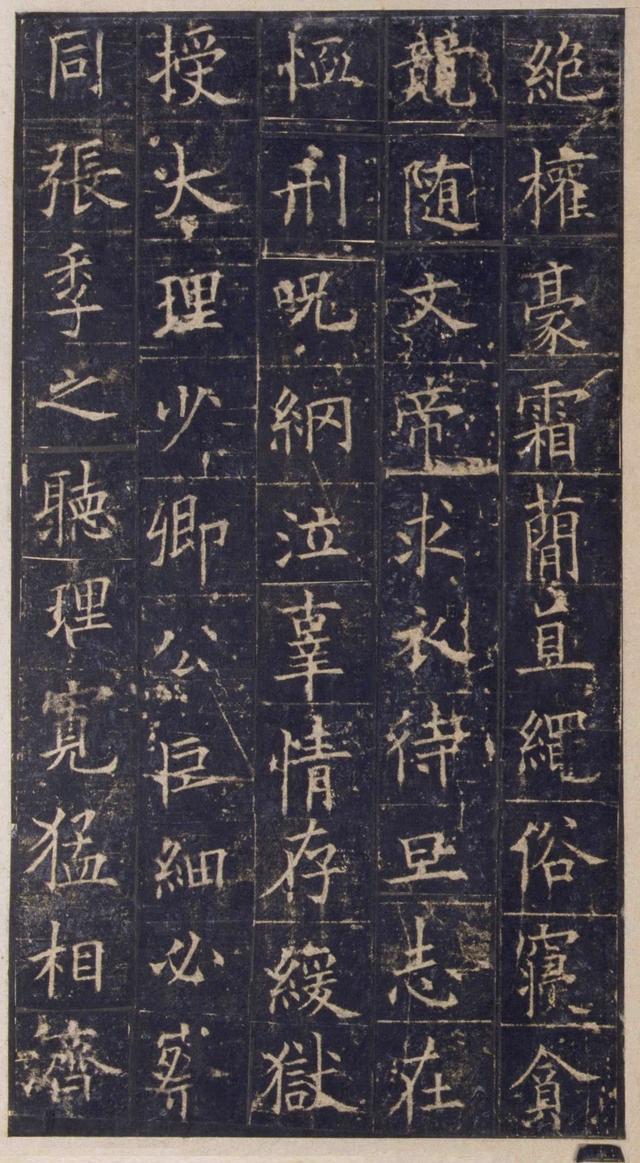 絶權豪霜蕑亘繩俗寢貪
競隨文帝求衣待旦志在
恤刑咒綱泣辜情存緩獄
授大理少卿公巨細必察
同張季之聽理寬猛相濟